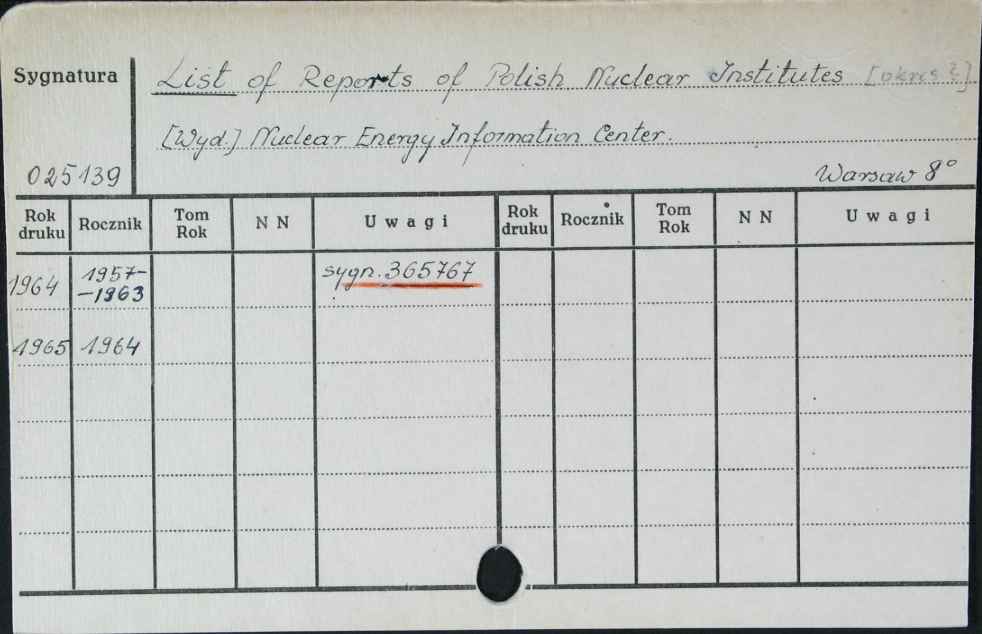 Sygnatura
List of Reports of Polish Nuclear Institutes [okres ?]
[Wyd.] Nuclear Energy Information Center.
025139
Warsaw 8°
Rok druku Rocznik Tom Rok N N Uwagi Rok druku Rocznik Tom Rok N N Uwagi
1964 1957-
-1963 sygn. 365767
1965 1964